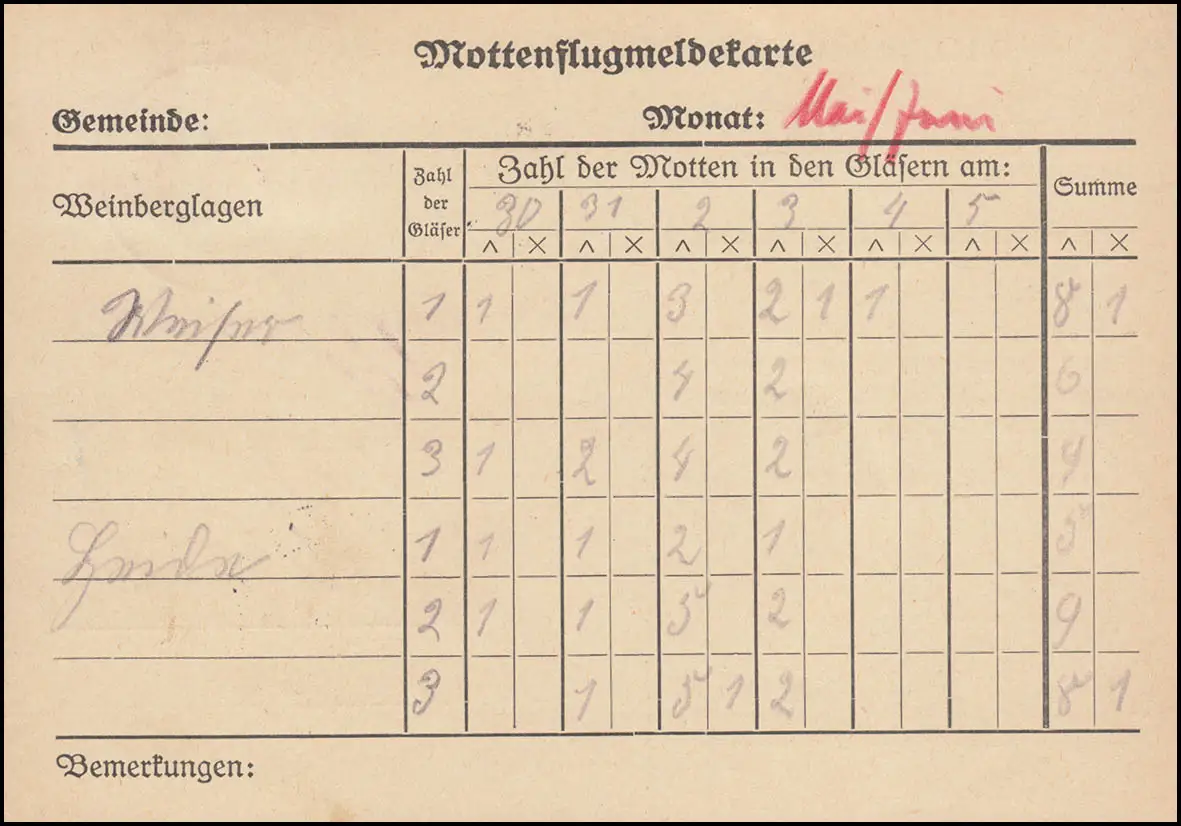 Mottenflugmeldekarte
Gemeinde: Monat: Mai/Juni
Weinberglagen Zahl der Gläser Zahl der Motten in den Gläsern am: Summe
30 31 2 3 4 5
^ × ^ × ^ × ^ × ^ × ^ × ^ ×
1 1 1 3 2 1 1 8 1
2 4 2 6
3 1 2 4 2 9
1 1 1 2 1 5
2 1 1 5 2 9
3 1 5 1 2 8 1
Bemerkungen: